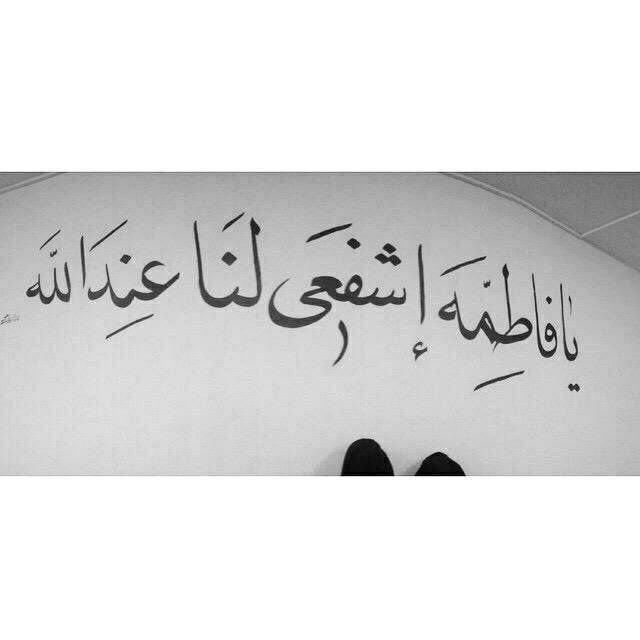 يا فاطِمّه إشفَعی لَنا عِندَ اللّه